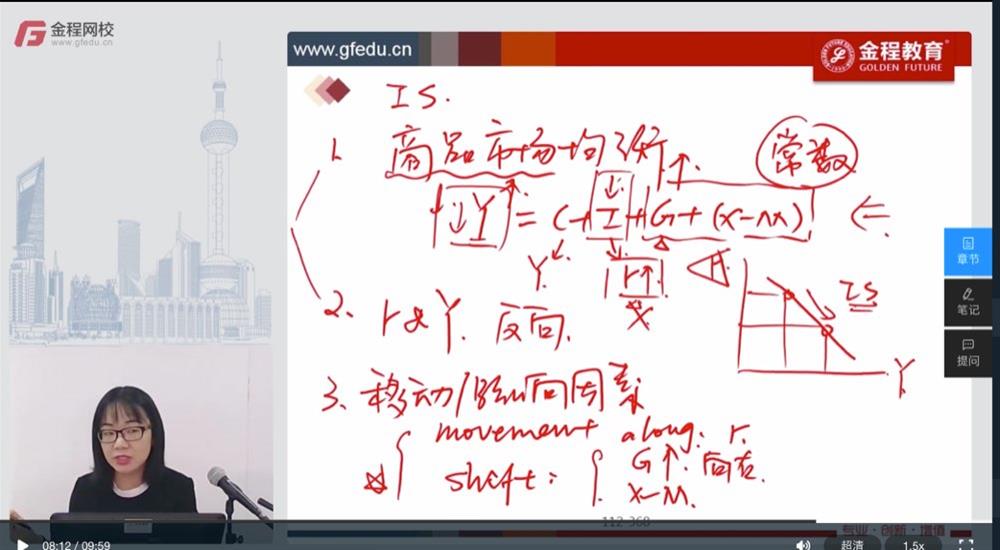 金程网校
www.gfedu.cn
www.gfedu.cn
金程教育
GOLDEN FUTURE
IS.
1. 商品市场均衡
常数
↓Y = C + I + G + (X-M)
Y
r↑
IS
Y
2. r & Y. 反向.
3. 移动/影响因素
movement along: r.
shift: { G↑. 向右.
X-M.
112-368
专业·创新·增值
章节
笔记
提问
08:12 / 09:59
超清
1.5x